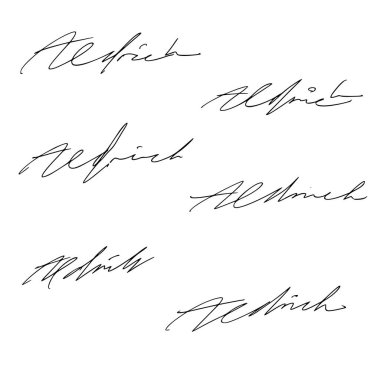 Aldrich
Aldrich
Aldrich
Aldrich
Aldrich
Aldrich